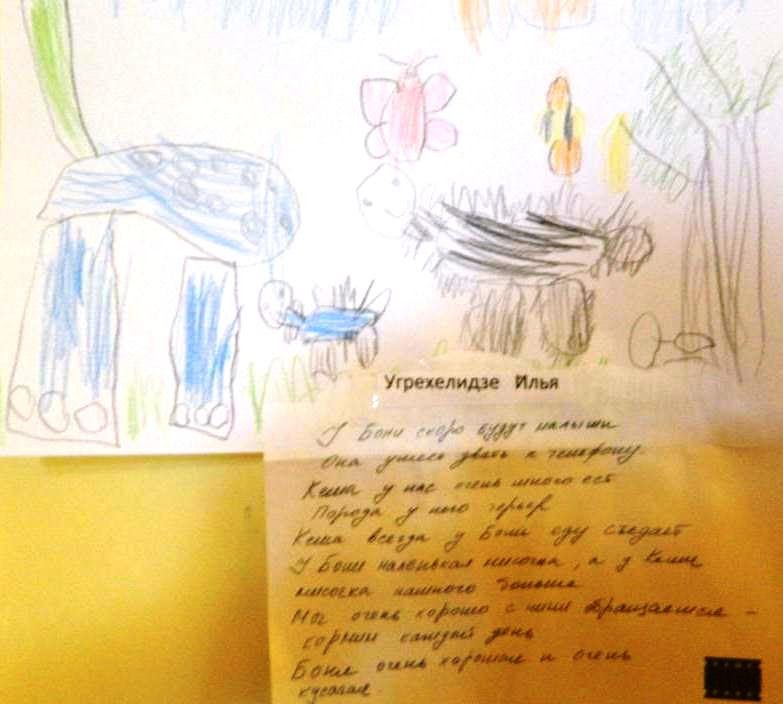 Угрехелидзе Илья
У Бони скоро будут малыши
Она умеет звать к телефону
Кеша у нас очень много ест
Порода у него терьер
Кеша всегда у Бони еду съедает
У Бони маленькая мисочка, а у Кеши
мисочка намного больше
Мы очень хорошо с ними обращаемся –
кормим каждый день
Боня очень хорошая и очень
кусачая.